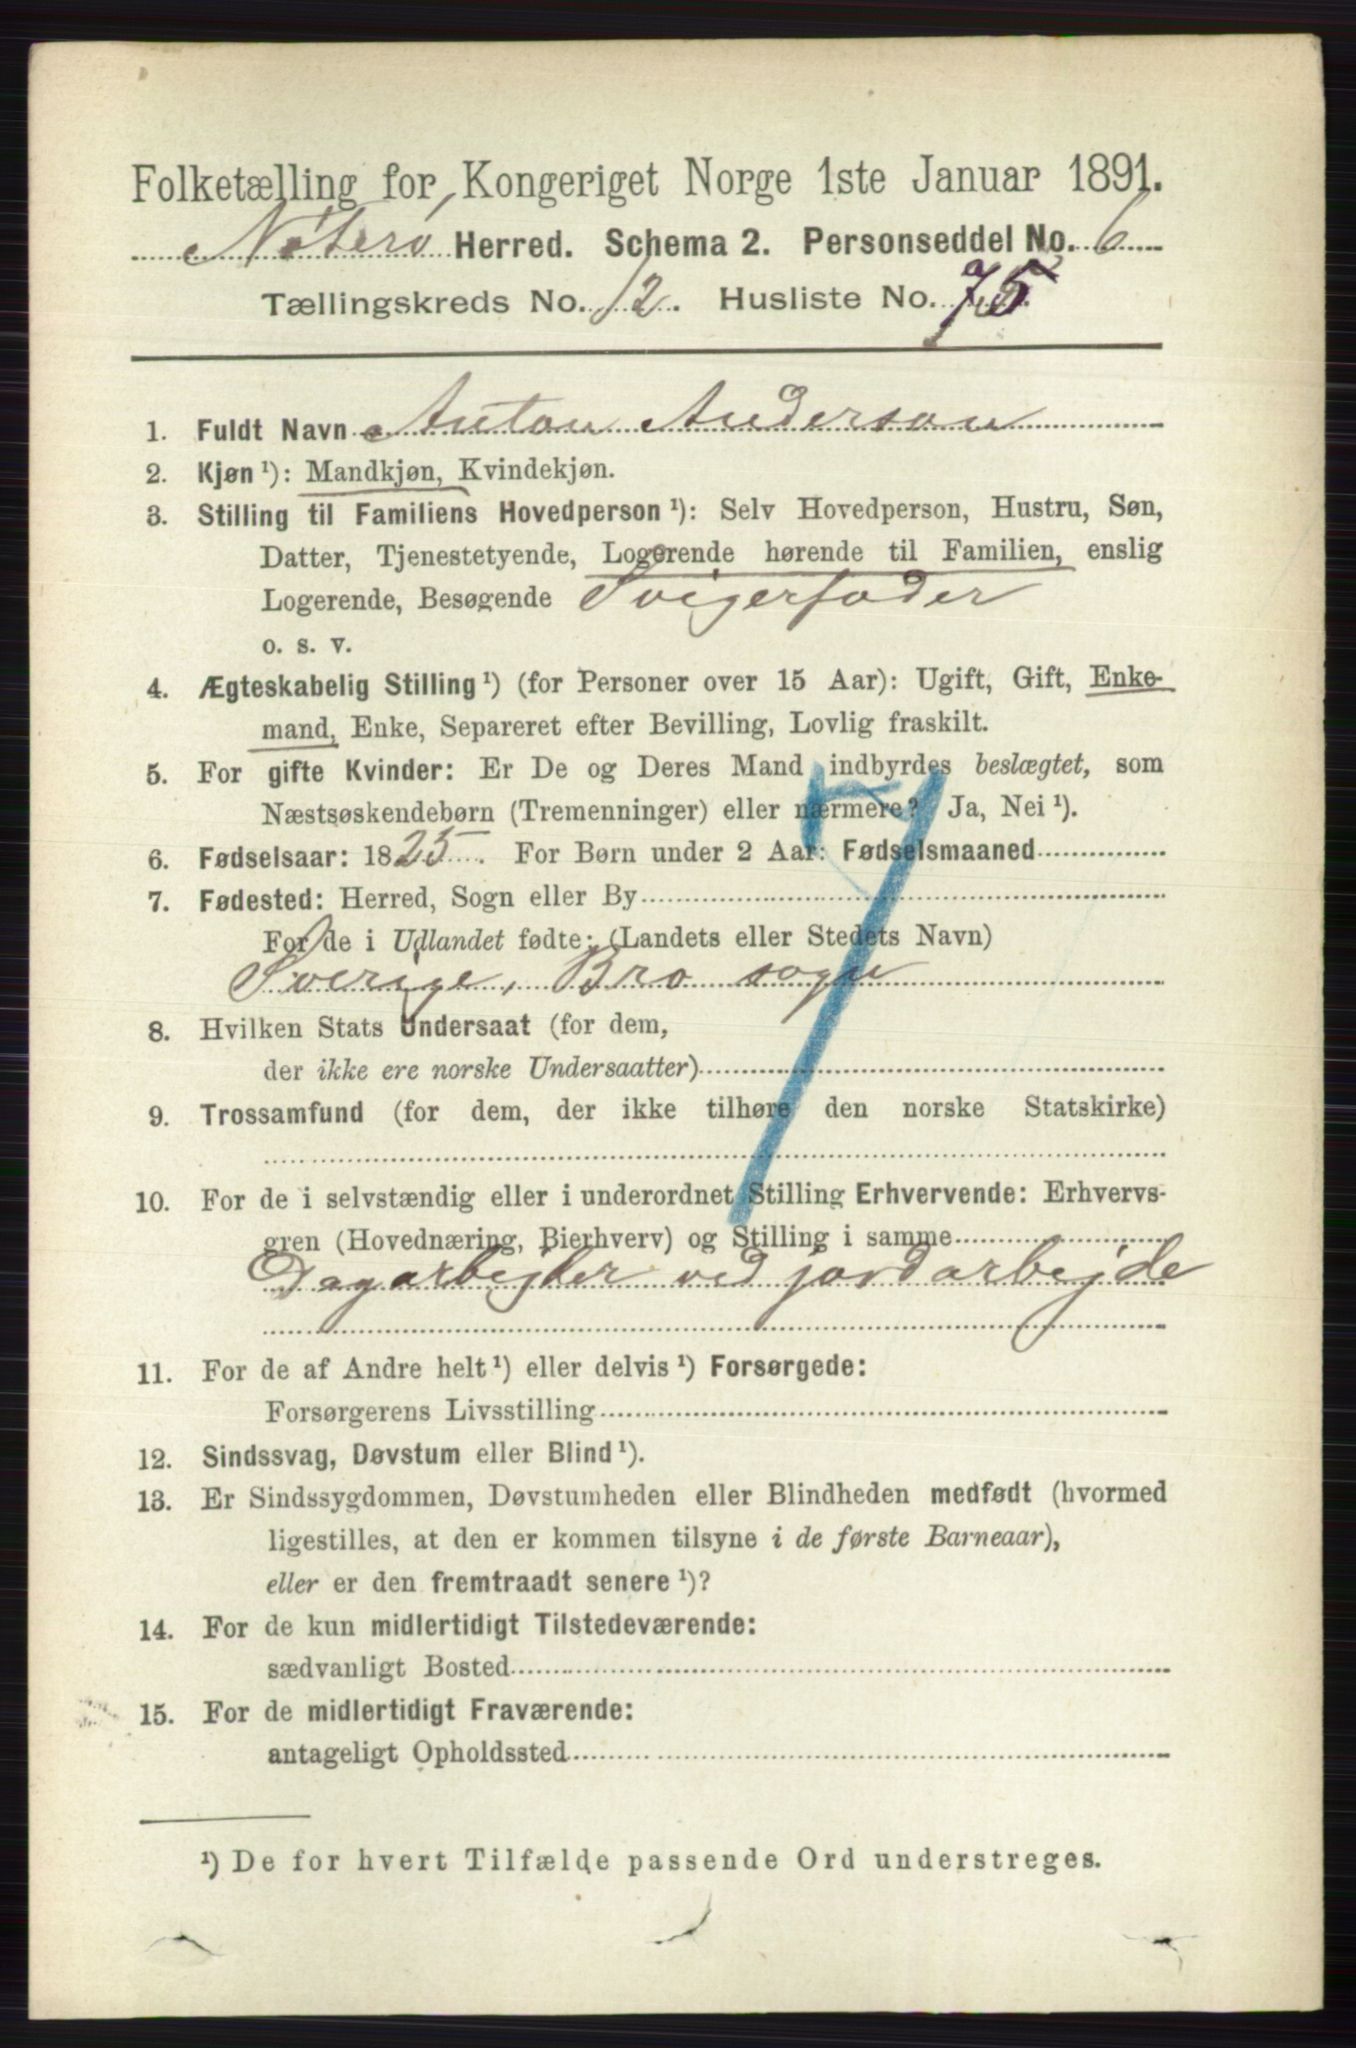 Folketælling for Kongeriget Norge 1ste Januar 1891.
Nøterø Herred. Schema 2. Personseddel No. 6
Tællingskreds No. 12. Husliste No. 75
1. Fuldt Navn Anton Anderson
2. Kjøn ¹): Mandkjøn, Kvindekjøn.
3. Stilling til Familiens Hovedperson ¹): Selv Hovedperson, Hustru, Søn,
Datter, Tjenestetyende, Logerende hørende til Familien, enslig
Logerende, Besøgende Svigerfader
o. s. v.
4. Ægteskabelig Stilling ¹) (for Personer over 15 Aar): Ugift, Gift, Enke-
mand, Enke, Separeret efter Bevilling, Lovlig fraskilt.
5. For gifte Kvinder: Er De og Deres Mand indbyrdes beslægtet, som
Næstsøskendebørn (Tremenninger) eller nærmere? Ja, Nei ¹).
6. Fødselsaar: 1825. For Børn under 2 Aar: Fødselsmaaned
7. Fødested: Herred, Sogn eller By
For de i Udlandet fødte: (Landets eller Stedets Navn)
Sverige, Bro sogn
8. Hvilken Stats Undersaat (for dem,
der ikke ere norske Undersaatter)
9. Trossamfund (for dem, der ikke tilhøre den norske Statskirke)
10. For de i selvstændig eller i underordnet Stilling Erhvervende: Erhvervs-
gren (Hovednæring, Bierhverv) og Stilling i samme
Dagarbejder ved jordarbejde
11. For de af Andre helt ¹) eller delvis ¹) Forsørgede:
Forsørgerens Livsstilling
12. Sindssvag, Døvstum eller Blind ¹).
13. Er Sindssygdommen, Døvstumheden eller Blindheden medfødt (hvormed
ligestilles, at den er kommen tilsyne i de første Barneaar),
eller er den fremtraadt senere ¹)?
14. For de kun midlertidigt Tilstedeværende:
sædvanligt Bosted
15. For de midlertidigt Fraværende:
antageligt Opholdssted
¹) De for hvert Tilfælde passende Ord understreges.